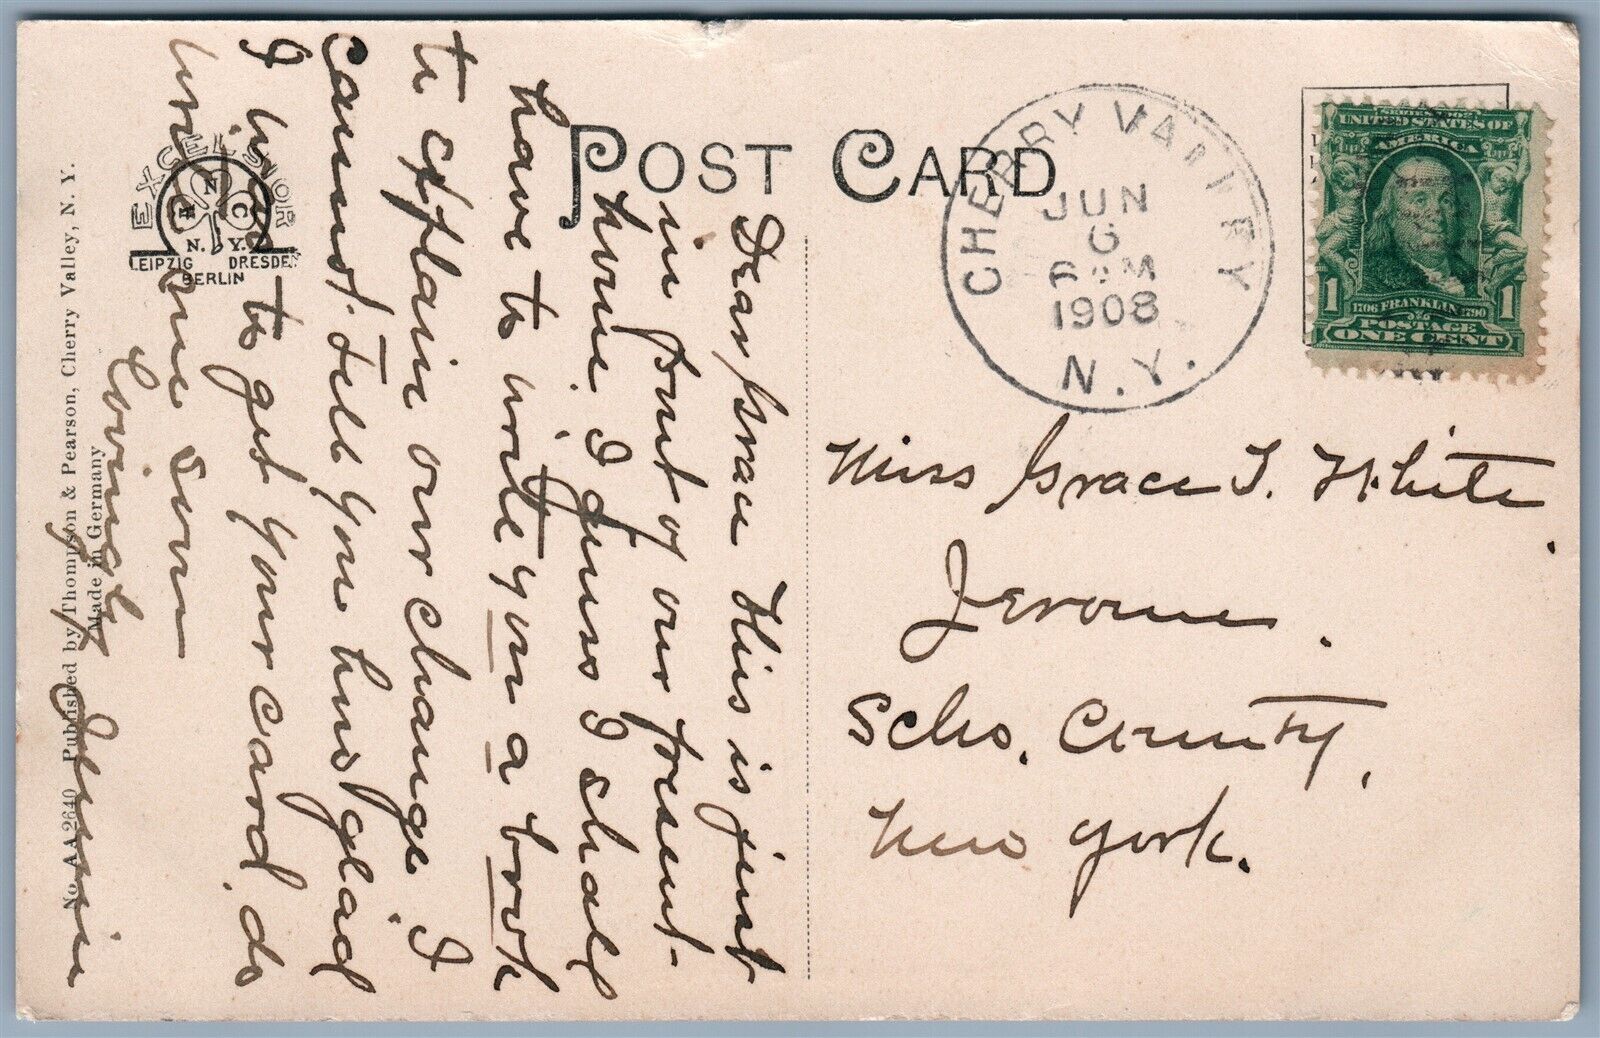 POST CARD
CHERRY VALLEY
JUN
6
6 M
1908
N.Y.
UNITED STATES OF
AMERICA
1 1706 FRANKLIN 1790 1
POSTAGE
ONE CENT
Miss Grace I. White.
Jerome.
Scho. County,
New York.
Dear Grace This is just
in front of our present
home. I guess I shall
have to write you a book
to explain our change. I
cannot tell you how glad
I was to get your card. do
write me soon
Lovingly
EXCELSIOR
N
H C
N. Y.
LEIPZIG DRESDEN
BERLIN
No. AA 2640 Published by Thompson & Pearson, Cherry Valley, N. Y.
Made in Germany